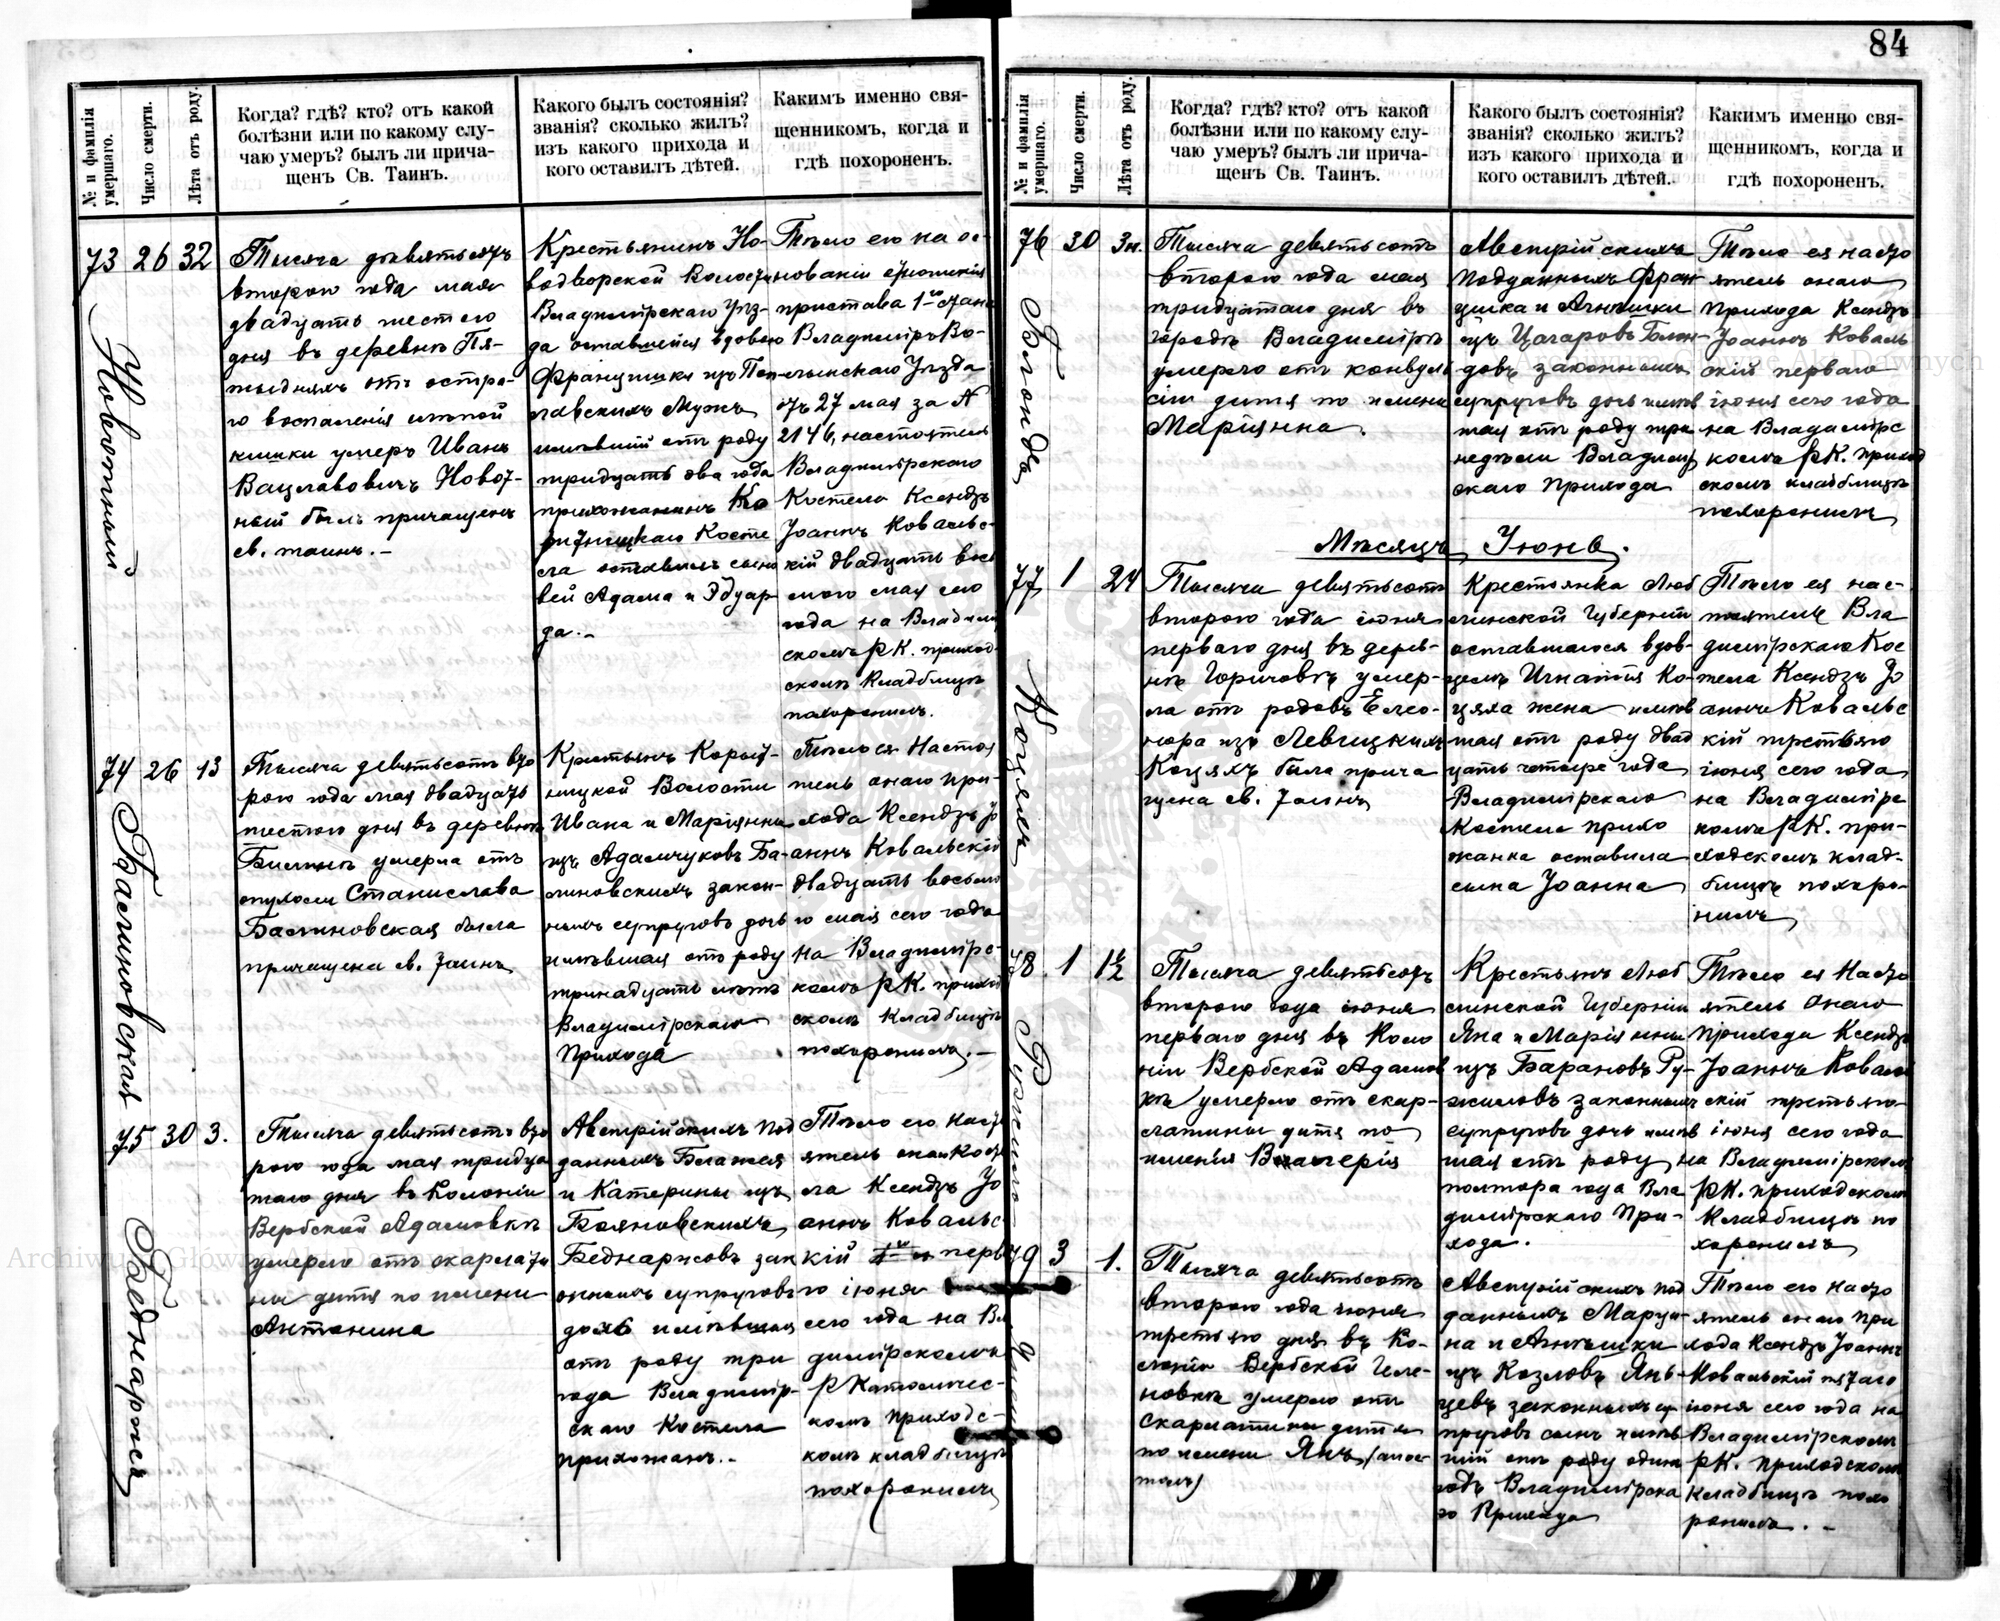 84
№ и фамилія умершаго.
Число смерти.
Лѣта отъ роду.
Когда? гдѣ? кто? отъ какой
болѣзни или по какому слу-
чаю умеръ? былъ ли прича-
щенъ Св. Таинъ.
Какого былъ состоянія?
званія? сколько жилъ?
изъ какого прихода и
кого оставилъ дѣтей.
Какимъ именно свя-
щенникомъ, когда и
гдѣ похороненъ.
73 26 32
Новотный
Тысяча девятьсотъ
второго года мая
двадцать шестого
дня въ деревнѣ Пя-
тыдняхъ отъ остра-
го воспаленія слѣпой
кишки умеръ Иванъ
Вацлавовичъ Новот-
ный былъ причащенъ
св. таинъ.-
Крестьянинъ Но-
водворской Волости
Владимірскаго Уѣз-
да оставшейся вдовою
Францишки изъ
мужъ
имѣвшій отъ роду
тридцать два года
прихожанинъ Ко-
Косте
ла оставилъ сыно
вей Адама и Эдуар-
да.-
Тѣло его на ос-
нованіи отношенія
пристава 1го стана
Владиміръ Во-
лынскаго Уѣзда
отъ 27 мая за №
2146, настоятель
Владимірскаго
Костела Ксендзъ
Іоаннъ Ковальс-
кій двадцать вось
мого мая сего
года на Владимір
скомъ РК. приход
скомъ Кладбищѣ
похоронилъ.
74 26 13
Балиновская
Тысяча девятьсотъ вто
рого года мая двадцать
шестого дня въ деревнѣ
умерла отъ
опухоли Станислава
Балиновская была
причащена св. Таинъ
Крестьянъ Корыт-
ницкой Волости
Ивана и Маріянны
изъ Адамчуковъ Ба-
линовскихъ закон-
ныхъ супруговъ дочь
имѣвшая отъ роду
тринадцать лѣтъ
Владимірскаго
Прихода
Тѣло ея Настоя
тель онаго при-
хода Ксендзъ Іо
аннъ Ковальскій
двадцать восьмо
го мая сего года
на Владимірс-
комъ РК. приход
скомъ Кладбищѣ
похоронилъ.-
75 30 3.
Беднаржъ
Тысяча девятьсотъ вто
рого года мая тридца
таго дня въ Колоніи
Вербской Адамовкѣ
умерло отъ скарлати
ны дитя по имени
Антонина
Австрійскихъ под
данныхъ Блажея
и Катерины изъ
Бояновскихъ
Беднаржовъ зак
онныхъ супруговъ
дочь имѣвшая
отъ роду три
года Владимір-
скаго Костела
прихожанъ.-
Тѣло его Насто
ятель онаго Косте
ла Ксендзъ Іо
аннъ Ковальс-
кій перва
го іюня
сего года на Вла
димірскомъ
РКатоличес-
комъ приходс-
комъ кладбищѣ
похоронилъ
№ и фамилія умершаго.
Число смерти.
Лѣта отъ роду.
Когда? гдѣ? кто? отъ какой
болѣзни или по какому слу-
чаю умеръ? былъ ли прича-
щенъ Св. Таинъ.
Какого былъ состоянія?
званія? сколько жилъ?
изъ какого прихода и
кого оставилъ дѣтей.
Какимъ именно свя-
щенникомъ, когда и
гдѣ похороненъ.
76 30 3н.
Блонда
Тысяча девятьсотъ
второго года мая
тридцатаго дня въ
городѣ Владимірѣ
умерло отъ конвуль
сіи дитя по имени
Маріянна.
Австрійскихъ
подданныхъ Фран
цишка и Агнѣшки
изъ Цагаровъ Блон-
довъ законныхъ
супруговъ дочь имѣв
шая отъ роду три
недѣли Владимір
скаго Прихода
Тѣло ея насто
ятель онаго
прихода Ксендзъ
Іоаннъ Коваль
скій перваго
іюня сего года
на Владимірс
комъ РК. приход
скомъ кладбищѣ
похоронилъ
Мѣсяцъ Іюнь.
77 1 24
Коцяхъ
Тысяча девятьсотъ
второго года іюня
перваго дня въ дерев-
нѣ Горичовѣ умер-
ла отъ родовъ Елео-
нора изъ Левицкихъ
Коцяхъ была прича
щена св. Таинъ
Крестьянка Люб
линской Губерніи
оставшагося вдов-
цемъ Игнатія Ко-
цяха жена имѣв
шая отъ роду двад
цать четыре года
Владимірскаго
Костела прихо
жанка оставила
сына Іоанна
Тѣло ея нас-
тоятель Вла
димірскаго Кос
тела Ксендзъ Іо
аннъ Ковальс
кій третьяго
іюня сего года
на Владимірс
комъ РК. при-
ходскомъ клад-
бищѣ похоро-
нилъ
78 1 1½
Тысяча девятьсотъ
второго года іюня
перваго дня въ Коло
ніи Вербской Адамов
кѣ умерло отъ скар-
латины дитя по
имени Валерія
Крестьянъ Люб
линской Губерніи
Яна и Маріянны
изъ Барановъ Ру-
жиловъ законныхъ
супруговъ дочь имѣв
шая отъ роду
полтора года Вла
димірскаго При-
хода.
Тѣло ея Насто
ятель онаго
Прихода Ксендзъ
Іоаннъ Коваль
скій третьяго
іюня сего года
на Владимірскомъ
РК. приходскомъ
Кладбищѣ по
хоронилъ
79 3 1.
Тысяча девятьсотъ
второго года іюня
третьяго дня въ Ко-
лоніи Вербской Геле-
новкѣ умерло отъ
скарлатины дитя
по имени Янъ
Австрійскихъ под
данныхъ Марци-
на и Агнѣшки
изъ Козловъ Янь-
цевъ законныхъ су
пруговъ сынъ имѣв
шій отъ роду одинъ
годъ Владимірска
го Прихода
Тѣло его насто
ятель онаго при
хода Ксендзъ Іоаннъ
Ковальскій пятаго
іюня сего года на
Владимірскомъ
РК. приходскомъ
Кладбищѣ похо
ронилъ.-
Archiwum Główne Akt Dawnych
Archiwum Główne Akt Dawnych